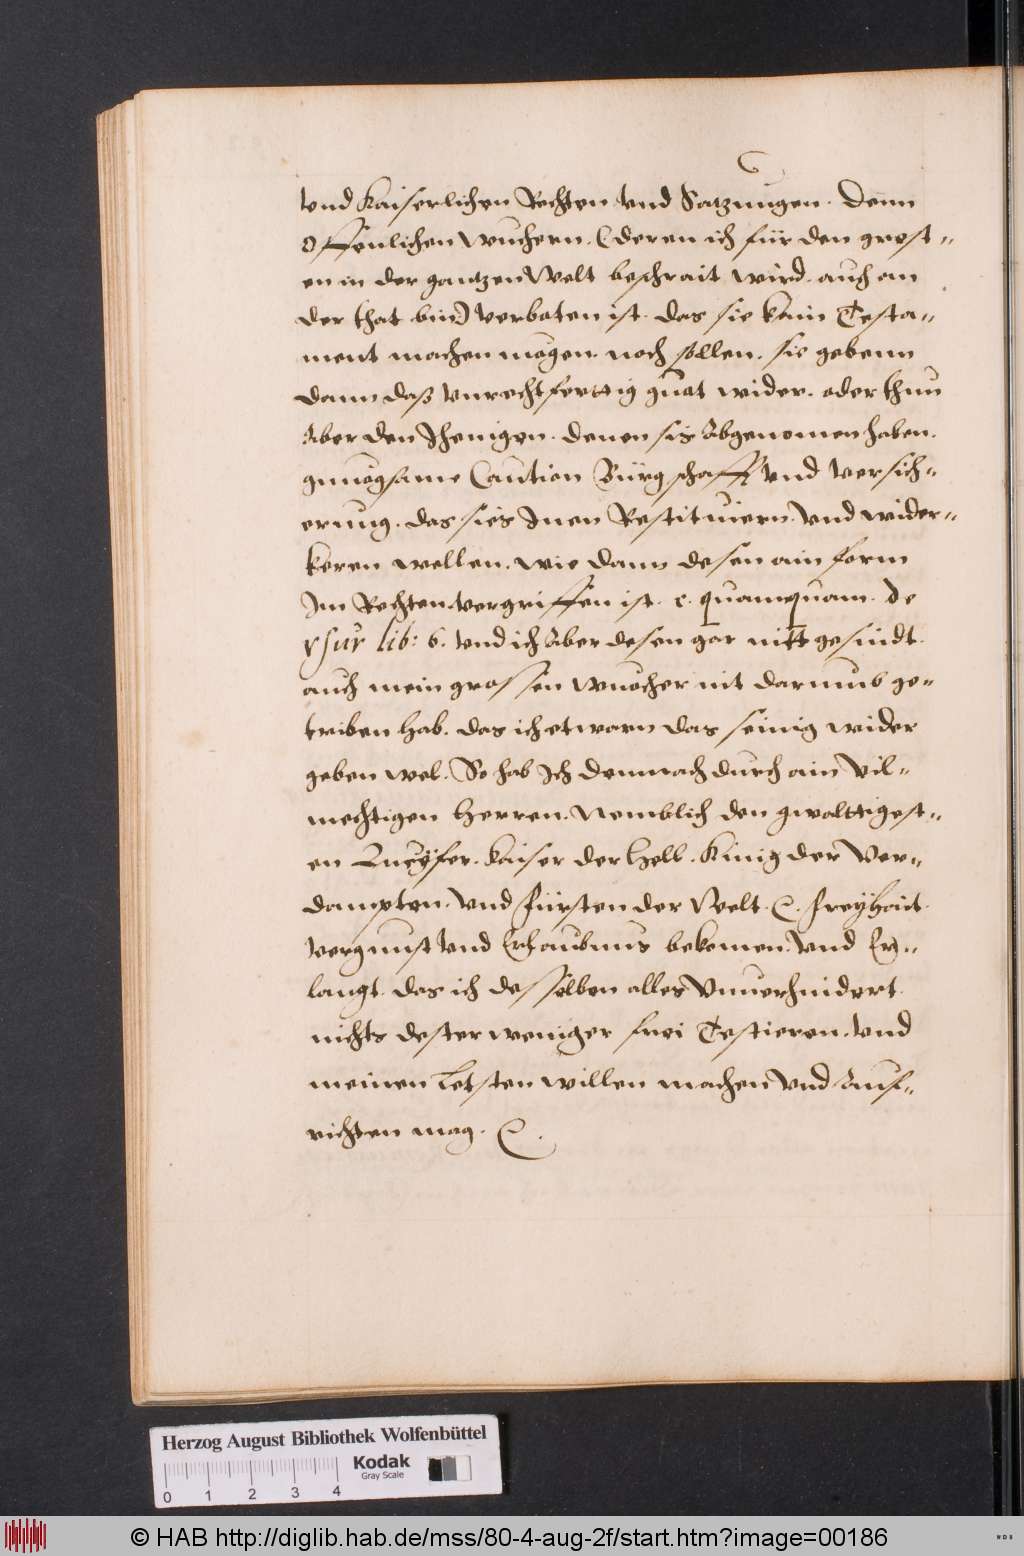 vnd Kaiserlichen Rechten vnd Satzungen. Denn
offenlichen wuchern. (deren ich für den grest-
en in der gantzen Welt beschrait wird. auch an
der that bin) verboten ist. das sie kain Testa-
ment machen mogen. noch sollen. sie gebenn
dann daß vnrechtferttig guot wider. oder thun
Aber den Jhenigen. denen sis Abgenomen haben.
gnuogsame Caution Bürgschafft vnd versich-
erung. das sies Jnen Restituiern. vnd wider-
keren wellen. wie dann desen ain form
Jm Rechten vergriffen ist. c. quamquam. de
vsur lib: 6. vnd ich Aber desen gar nitt gesindt.
auch mein grossen wuocher nit darumb ge-
triben hab. das ich etwarn das seinig wider
geben wel. So hab Ich demnach durch ain vil-
mechtigen Herren. Nemblich den gwalttigest-
en Lucÿfer. Kaiser der Hell. Kinig der Ver-
dampten. vnd Fürsten der Welt. ꝛc. Freÿhait.
vergunst vnd Erlaubnus bekomen. vnd Er-
langt. das ich desselben alles Vnuerhindert
nichts dester weniger frei Testieren. vnd
meinen letsten willen machen vnd Auf-
richten mag. ꝛc.
Herzog August Bibliothek Wolfenbüttel
Kodak
Gray Scale
0 1 2 3 4
© HAB http://diglib.hab.de/mss/80-4-aug-2f/start.htm?image=00186